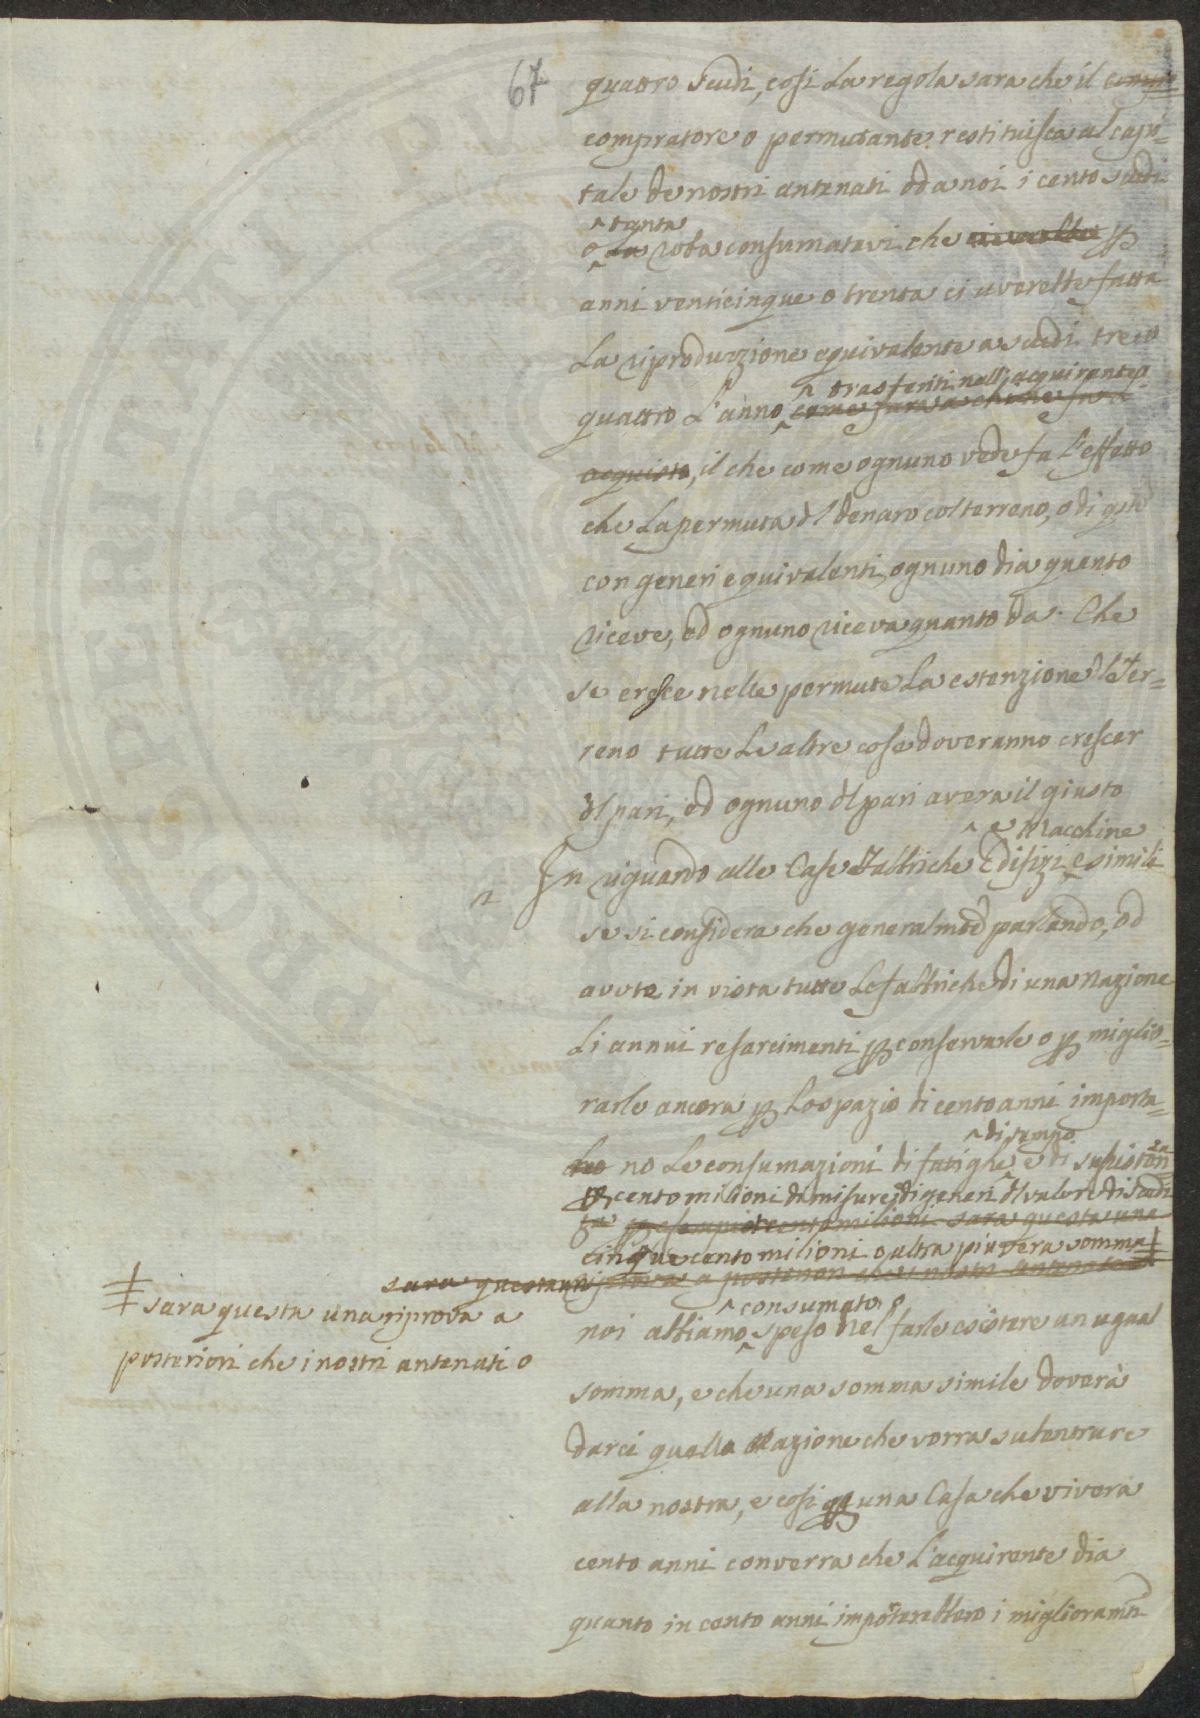 67
quattro Scudi, così La regola sara che il comp=
compratore o permutante restituisca al capi=
tale de nostri antenati od a noi i cento scudi
^ tanta
o La roba consumatavi che p
anni venticinque o trenta ci averebbe fatta
La riproduzzione equivalente a scudi tre o
^ trasferiti nell'acquirente
quattro L'anno come sara a chi ne fu d
acquisto, il che come ognuno vede fa l'effetto
che La permuta dl denaro col terreno, o di qsto
con generi equivalenti, ognuno dia quanto
riceve, ed ognuno riceva quanto da. Che
se cresce nelle permute La estenzione dl ter=
reno tutte Le altre cose doveranno crescer
dl pari, ed ognuno dl pari avera il giusto
^ e Macchine
n In riguardo alle Case Fabbriche Edifizi e simili
se si considera che generalmte parlando, ed
avute in vista tutte Le fabbriche di una Nazione
Li annui resarcimenti p conservarle o p miglio=
rarle ancora p Lo spazio di cento anni importa=
^ di tempo
no Le consumazioni di fatighe e di susistenza
cento milioni di misure di generi dl valore di scudi
ta p esempio cento milioni sara questa una
cinque cento milioni o altra piu vera somma ‡
sara questa una riprova a posteriori che i nostri antenati o
‡ sara questa una riprova a
posteriori che i nostri antenati o
^ consumato o
noi abbiamo speso nel farle esistere un ugual
somma, e che una somma simile doverà
darci quella Nazione che vorra subentrare
alla nostra, e così p una Casa che vivera
cento anni converra che L'acquirente dia
quanto in cento anni importerebbero i miglioramti